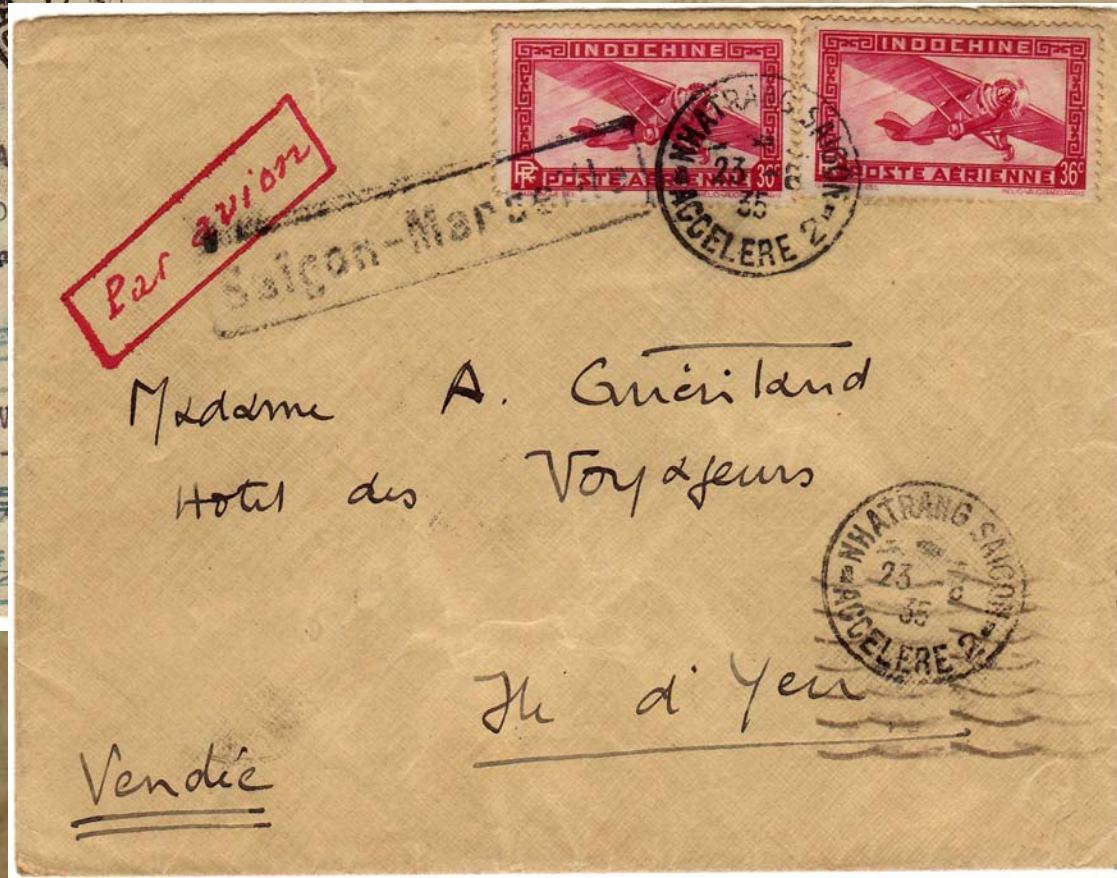 INDOCHINE
RF POSTE AÉRIENNE 36c
INDOCHINE
POSTE AÉRIENNE 36c
NHATRANG SAIGON
23 8
35
ACCELERE 2
Par avion
Saigon-Marseille
Madame A.
Hotel des Voyageurs
NHATRANG SAIGON
23 8
35
ACCELERE 2
Ile d'Yeu
Vendée